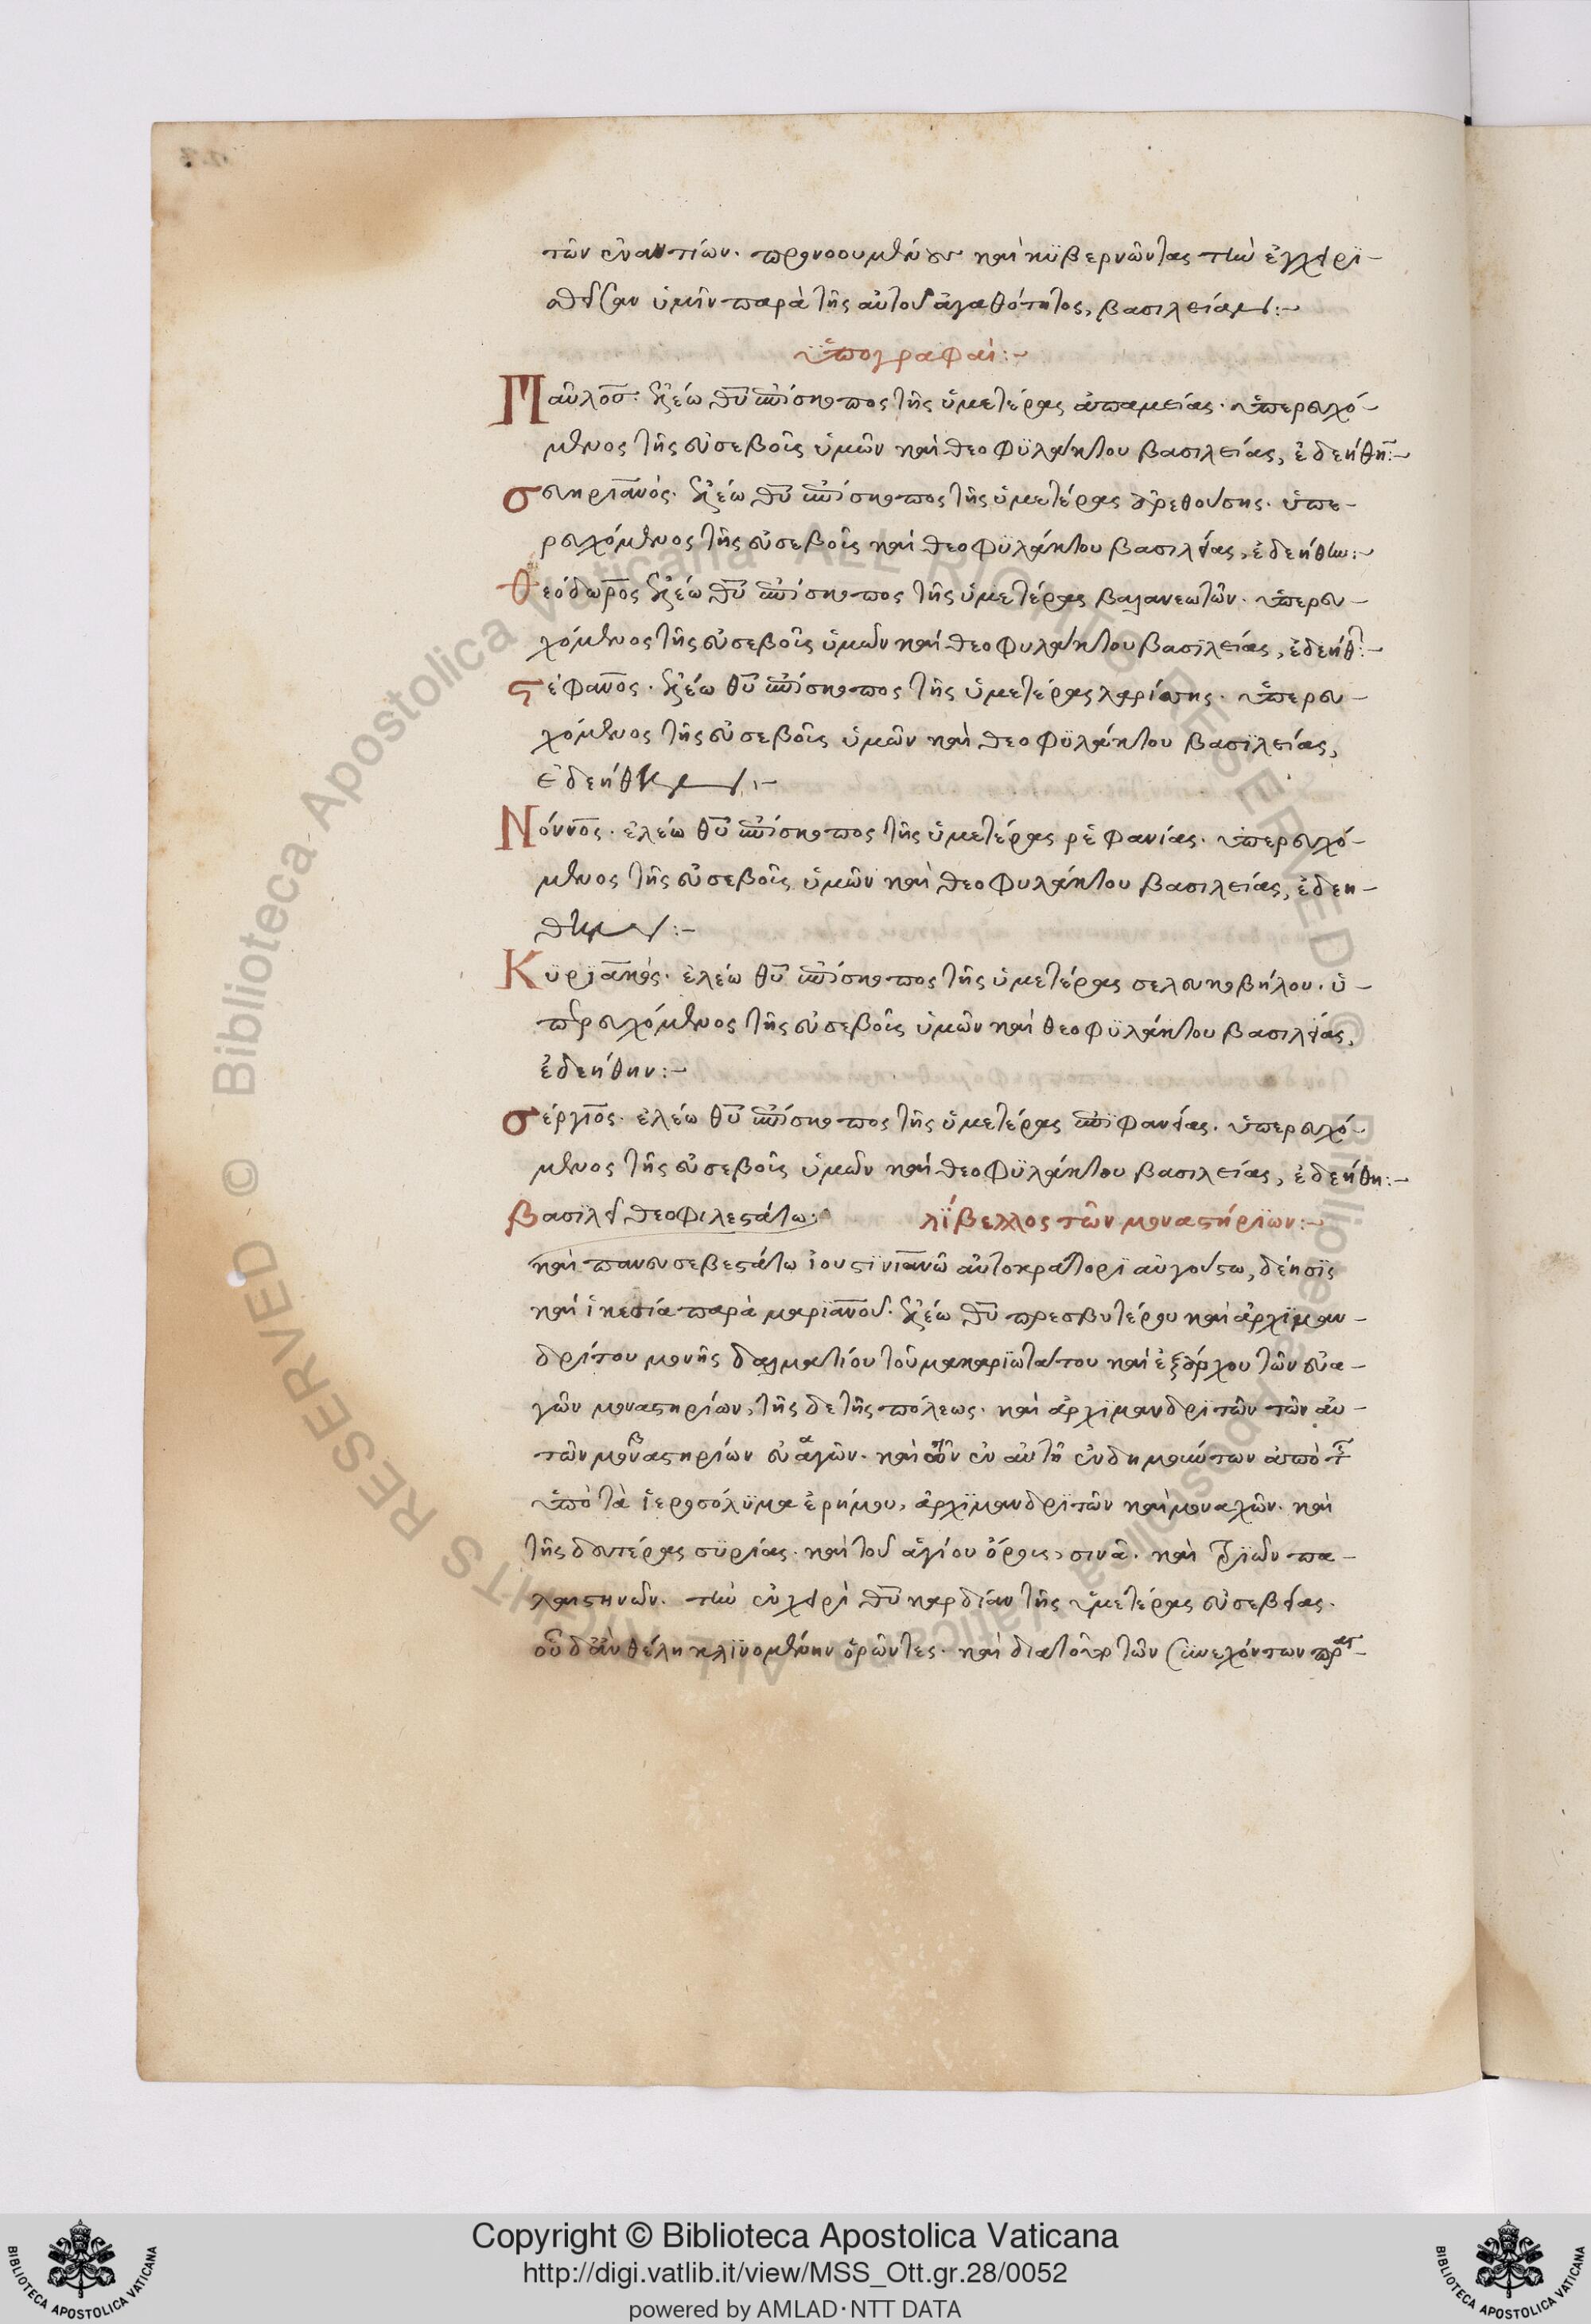 τῶν ἐναντίων. προνοουμένους καὶ κϋβερνῶντας τὴν ἐγχειρϊ-
σθεῖσαν ὑμῖν παρὰ τῆς αὐτοῦ ἀγαθότητος, βασιλείαν:-
ὑπογραφαί:-
Παῦλος. ἐλέω θῦ ἐπίσκοπος τῆς ὑμετέρας ἀπαμείας. ὑπερευχό-
μενος τῆς εὐσεβοῦς ὑμῶν καὶ θεοφϋλάκτου βασιλείας, ἐδεήθην:-
σευηριανός. ἐλέω θῦ ἐπίσκοπος τῆς ὑμετέρας ἀρεθούσης. ὑπε-
ρευχόμενος τῆς εὐσεβοῦς καὶ θεοφϋλάκτου βασιλείας, ἐδεήθην:-
θεόδωρος ἐλέω θῦ ἐπίσκοπος τῆς ὑμετέρας βαλανεωτῶν. ὑπερευ-
χόμενος τῆς εὐσεβοῦς ὑμῶν καὶ θεοφυλάκτου βασϊλείας, ἐδεήθ:-
στέφανος. ἐλέω θῦ ἐπίσκοπος τῆς ὑμετέρας λαρίσσης. ὑπερευ-
χόμενος τῆς εὐσεβοῦς ὑμῶν καὶ θεοφϋλάκτου βασϊλείας,
ἐδεήθην:-
Νόννος. ἐλέω θῦ ἐπίσκοπος τῆς ὑμετέρας ρεφανίας. ὑπερευχό-
μενος τῆς εὐσεβοῦς ὑμῶν καὶ θεοφυλάκτου βασιλείας, ἐδεή-
θην:-
Κϋρϊακός. ἐλέω θῦ ἐπίσκοπος τῆς ὑμετέρας σελευκοβήλου. ὑ-
περευχόμενος τῆς εὐσεβοῦς ὑμῶν καὶ θεοφϋλάκτου βασιλείας,
ἐδεήθην:-
σέργιος. ἐλέω θῦ ἐπίσκοπος τῆς ὑμετέρας ἐπϊφανείας. ὑπερευχό-
μενος τῆς εὐσεβοῦς ὑμῶν καὶ θεοφϋλάκτου βασιλείας, ἐδεήθη:-
βασϊλεῖ θεοφιλεστάτω: λϊβελλος τῶν μοναστήρϊων:-
καὶ πανευσεβεστάτω ἰουστϊνιανῶ αὐτοκράτορϊ αὐγούστω, δέησϊς
καὶ ἱκεσία παρὰ μαρϊανοῦ. ἐλέω θῦ πρεσβυτέρου καὶ ἀρχϊμαν-
δρίτου μονῆς δαλματίου τοῦ μακαρϊωτάτου καὶ ἐξάρχου τῶν εὐα-
γῶν μοναστηρίων, τῆς δε τῆς πόλεως. καὶ ἀρχϊμανδρϊτῶν τῶν αὐ-
τῶν μοναστηρίων εὐαγῶν. καὶ τῶν ἐν αὐτῆ ἐνδημούντων ἀπὸ τ
ὑπὸ τὰ ἱεροσόλϋμα ἐρήμου, ἀρχϊμανδρϊτῶν καὶ μοναχῶν. καὶ
τῆς δευτέρας συρίας. καὶ τοῦ ἁγίου ὄρους, σινᾶ. καὶ τρϊῶν πα-
λαιστηνῶν. τὴν ἐν χειρὶ θῦ καρδίαν τῆς ὑμετέρας εὐσεβείας.
οὗ δ' ἂν θέλη κλϊνομένην ὁρῶντες. καὶ διὰ τοῦτο τῶν συνελόντων πρατ-
Copyright © Biblioteca Apostolica Vaticana
http://digi.vatlib.it/view/MSS_Ott.gr.28/0052
powered by AMLAD·NTT DATA
BIBLIOTECA APOSTOLICA VATICANA
BIBLIOTECA APOSTOLICA VATICANA